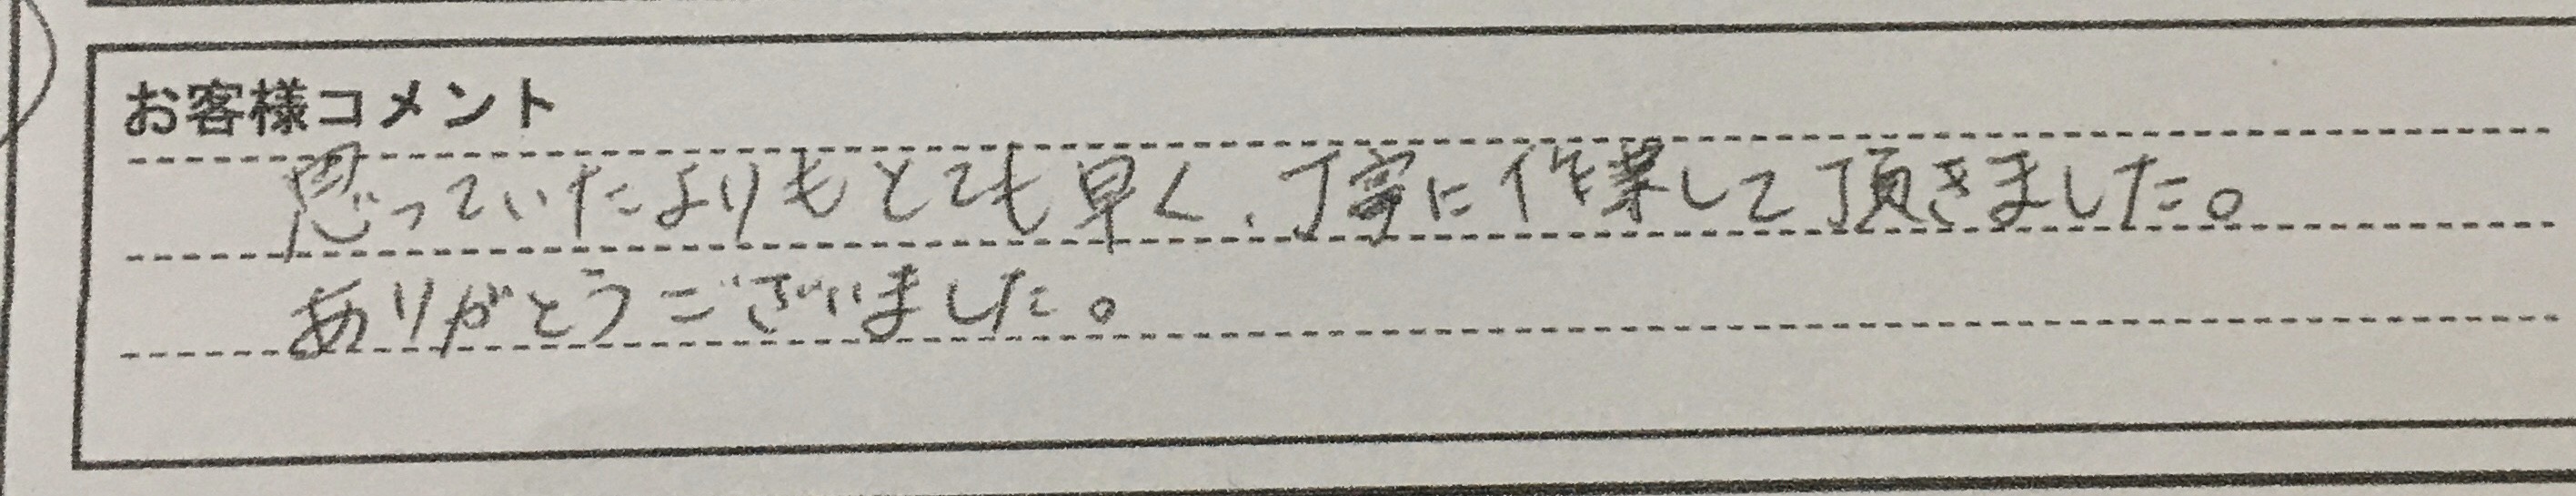 お客様コメント
思っていたよりもとても早く、丁寧に作業して頂きました。
ありがとうございました。